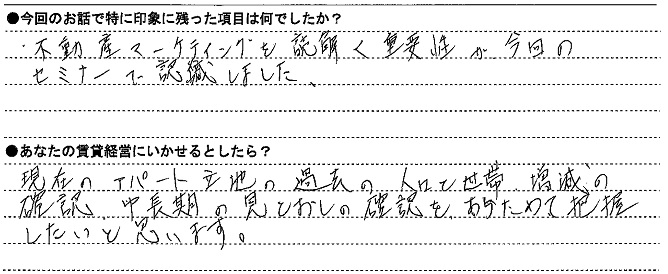 ●今回のお話で特に印象に残った項目は何でしたか？
・不動産マーケティングを読解く重要性が今回の
セミナーで認識しました、
●あなたの賃貸経営にいかせるとしたら？
現在のアパート立地の過去の人口と世帯増減の
確認、中長期の見とおしの確認をあらためて把握
したいと思います。